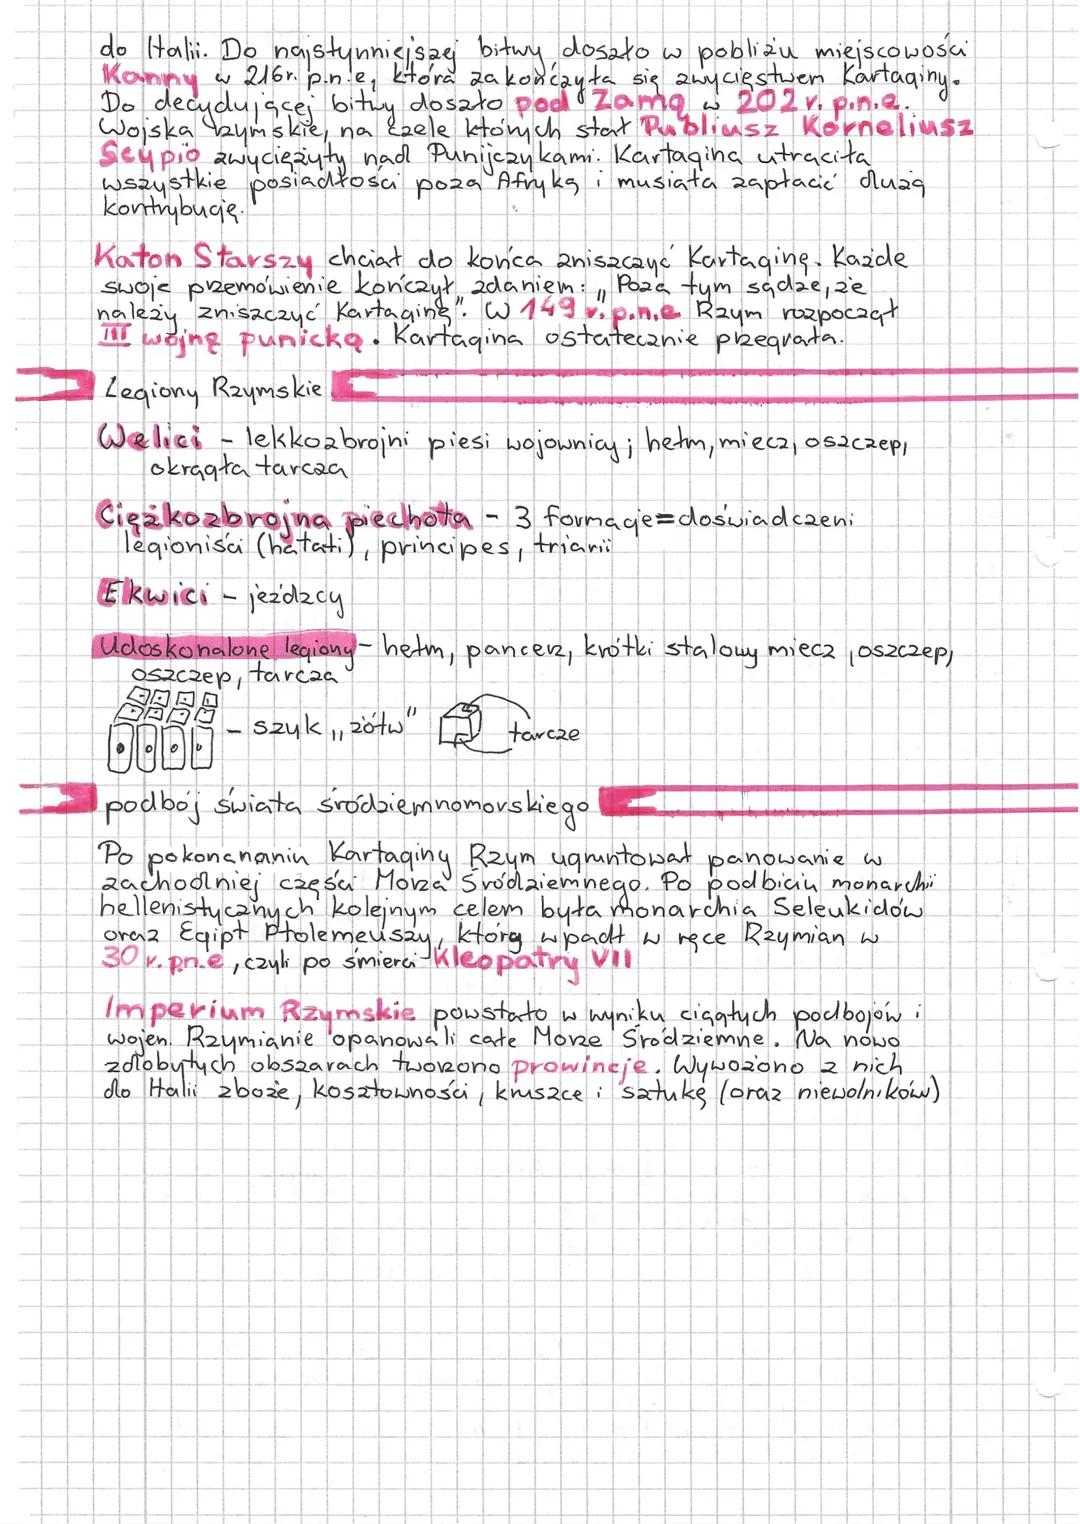 do Italii. Do najsłynniejszej bitwy doszło w pobliżu miejscowości
Kanny w 216r. p.n.e, która zakończyła się zwycięstwem Kartaginy.
Do decydującej bitwy doszło pod Zamą w 202 r. p.n.e.
Wojska rzymskie, na czele których stał Publiusz Korneliusz
Scypio zwyciężyły nad Punijczykami. Kartagina utraciła
wszystkie posiadłości poza Afryką i musiała zapłacić dużą
kontrybucję.
Katon Starszy chciał do końca zniszczyć Kartaginę. Każde
swoje przemówienie kończył zdaniem: „Poza tym sądzę, że
należy zniszczyć Kartaginę". W 149 r. p.n.e Rzym rozpoczął
III wojnę punicką. Kartagina ostatecznie przegrała.
Legiony Rzymskie
Welici - lekkozbrojni piesi wojownicy; hełm, miecz, oszczep,
okrągła tarcza
Ciężkozbrojna piechota - 3 formacje=doświadczeni
legioniści (hatati), principes, triarii
Ekwici - jeźdzcy
Udoskonalone legiony - hełm, pancerz, krótki stalowy miecz, oszczep,
oszczep, tarcza
- szyk „żółw" tarcze
podbój świata śródziemnomorskiego
Po pokonananiu Kartaginy Rzym ugruntował panowanie w
zachodniej części Morza Śródziemnego. Po podbiciu monarchii
hellenistycznych kolejnym celem była monarchia Seleukidów
oraz Egipt Ptolemeuszy, który wpadł w ręce Rzymian w
30 r. p.n.e, czyli po śmierci Kleopatry VII
Imperium Rzymskie powstało w wyniku ciągłych podbojów i
wojen. Rzymianie opanowali całe Morze Śródziemne. Na nowo
zdobytych obszarach tworzono prowincje. Wywożono z nich
do Italii zboże, kosztowności, kruszce i sztukę (oraz niewolników)